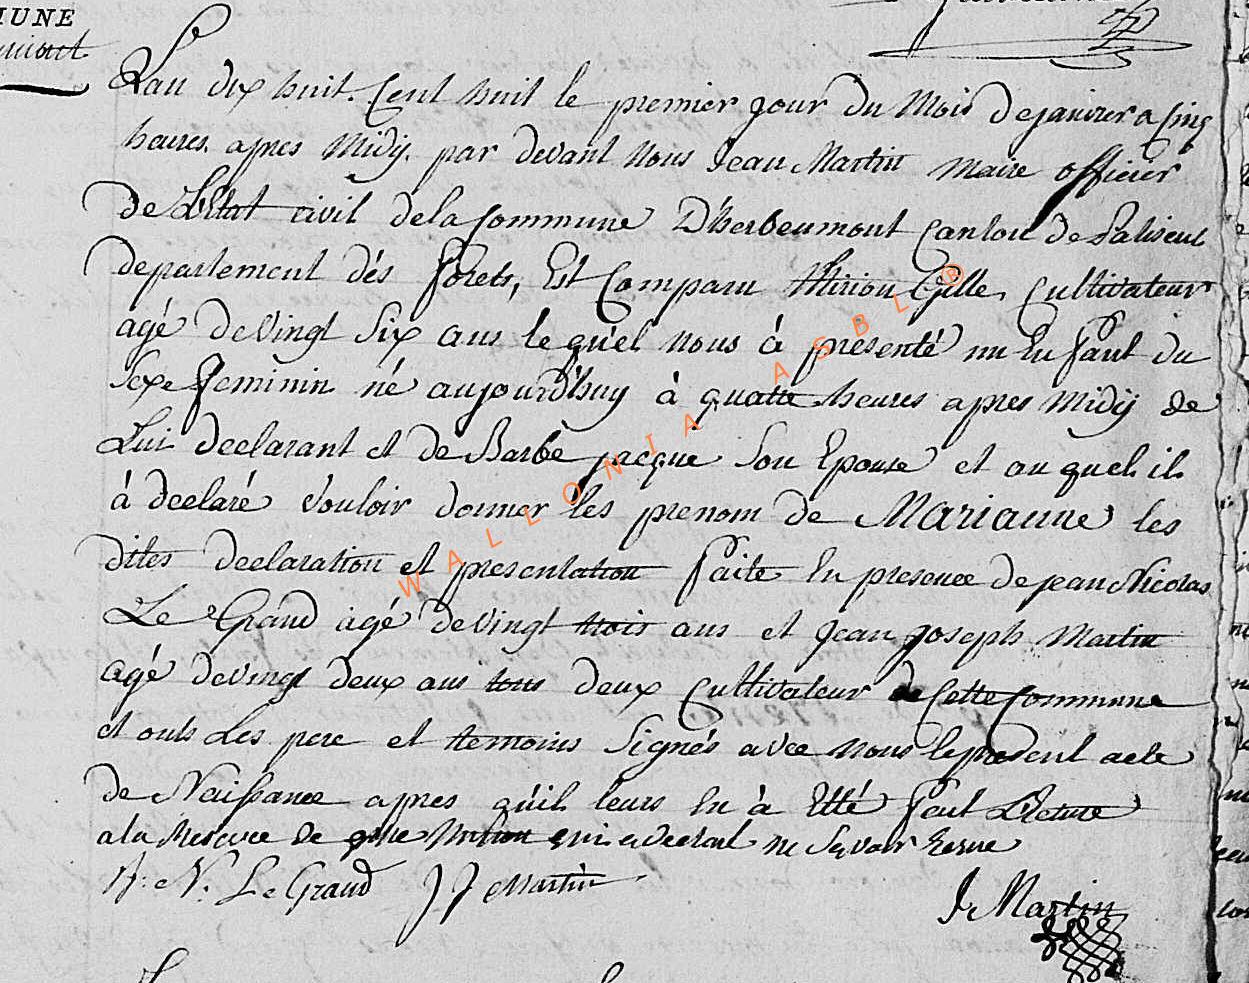 MUNE
L'an dix huit. Cent huit le premier jour du Mois de janvier a Cinq
heures. apres Midÿ. par devant Nous Jean Martin Maire officier
de L'Etat civil de la Commune D'herbeumont Canton de Paliseul
departement dés forets, Est Comparu Gille, Cultivateur
agé de Vingt Six ans le quel nous á présenté un Enfant du
Sexe feminin né aujourd'huy à quatte heures apres Midÿ de
Lui declarant et de Barbe jacque Son Epouse et au quel il
á declaré Vouloir donner les prenom de Marianne les
dites declaration et presentation faite En presence de jean Nicolas
Le Grand agé de Vingt trois ans et Jean joseph Martin
agé de Vingt deux ans tous deux Cultivateur de Cette Commune
et onts Les pere et temoins Signés avec nous le present acte
de Naissance apres quil leurs En à Etté fait Lecture
a la Reserve de qui a declaré ne Savoir
N. Le Grand J J Martin
J Martin
WALLONIA ASBL ®